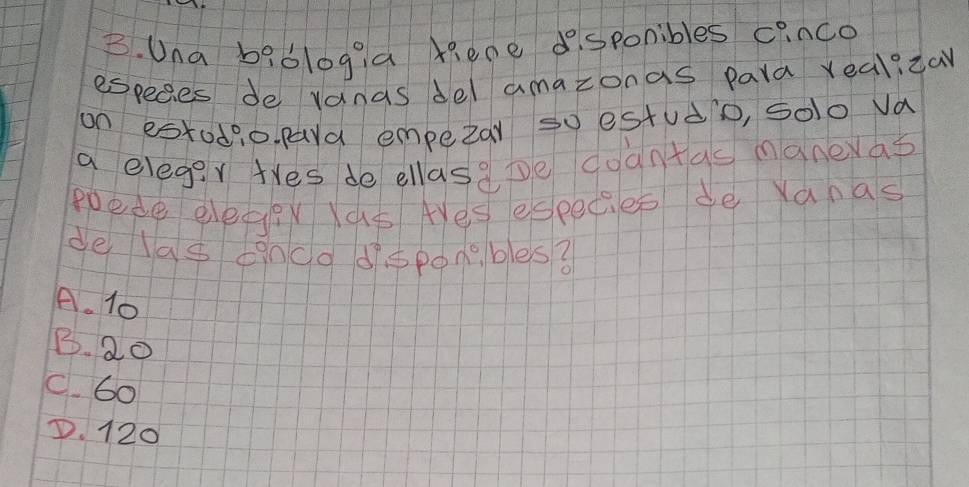 3. Una bióloga tiene disponibles cinco
especies de ranas del amazonas para realizar
un estudio. para empezar su estudio, solo va
a elegir tres de ellas ¿De cuántas maneras
puede elegir las tres especies de ranas
de las cinco disponibles?
A. 10
B. 20
C. 60
D. 120